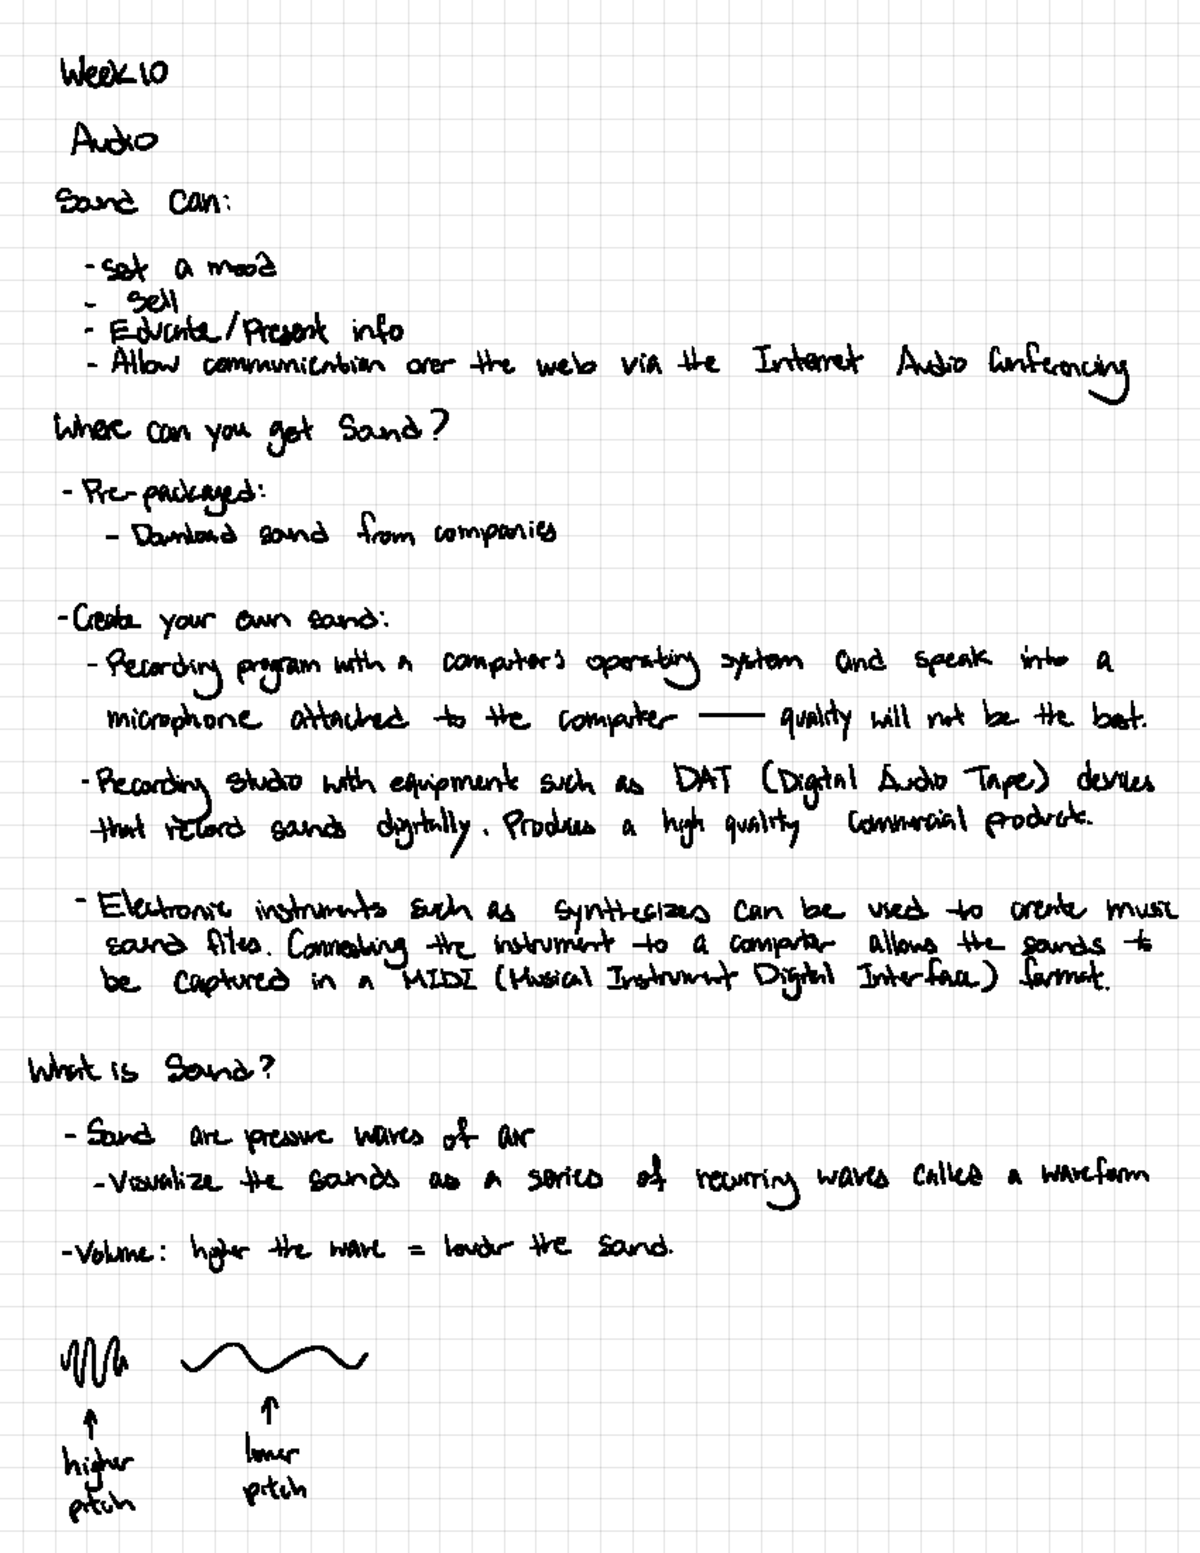 Week 10
Audio
Sound can:
- set a mood
- Sell
- Educate/Present info
- Allow communication over the web via the Internet Audio Conferencing
Where can you get Sound?
- Pre-packaged:
- Download sound from companies
- Create your own sound:
- Recording program with a computer's operating system and speak into a
microphone attached to the computer —— quality will not be the best.
- Recording studio with equipment such as DAT (Digital Audio Tape) devices
that record sounds digitally. Produces a high quality commercial product.
- Electronic instruments such as synthesizes can be used to create music
sound files. Connecting the instrument to a computer allows the sounds to
be captured in a MIDI (Musical Instrument Digital Interface) format.
What is Sound?
- Sound are pressure waves of air
- Visualize the sounds as a series of recurring waves called a waveform
- Volume: higher the wave = louder the sound.
higher
pitch
lower
pitch